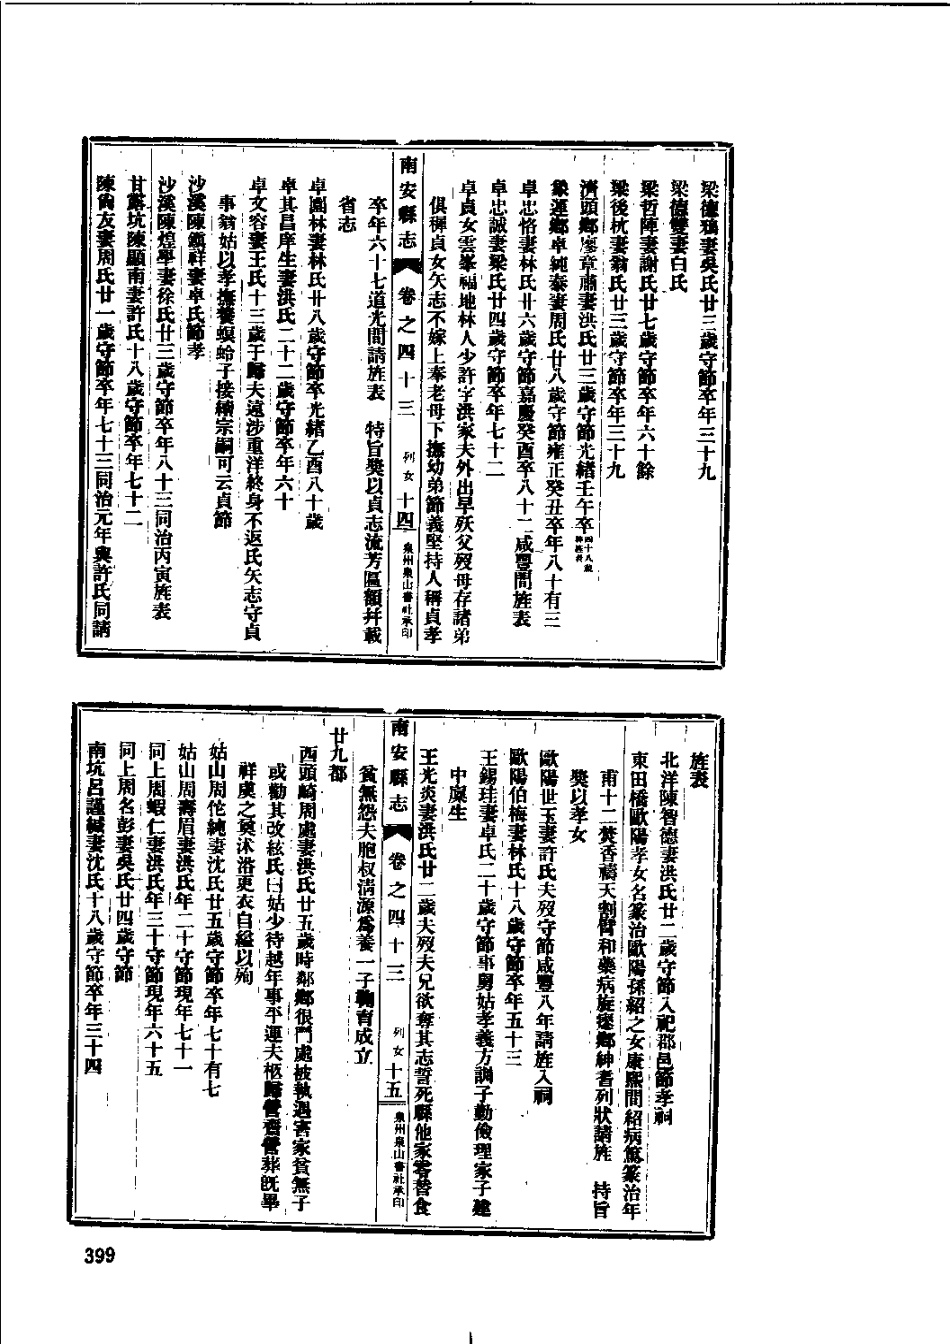 梁德鴉妻吳氏廿三歲守節卒年三十九
梁德雙妻白氏
梁哲陣妻謝氏廿七歲守節卒年六十餘
梁後杭妻翁氏廿三歲守節卒年三十九
濟頭鄉廖章肅妻洪氏廿三歲守節光緒壬午卒四十八歲
象運鄉卓純泰妻周氏廿八歲守節雍正癸丑卒年八十有三
卓忠恪妻林氏廿六歲守節嘉慶癸酉卒八十二咸豐間旌表
卓忠誠妻梁氏廿四歲守節卒年七十二
卓貞女雲峯福地林人少許字洪家夫外出早歿父歿母存諸弟
俱穉貞女矢志不嫁上奉老母下撫幼弟節義堅持人稱貞孝
南安縣志 卷之四十三 列女 十四 泉州泉山書社承印
卒年六十七道光間請旌表 特旨奬以貞志流芳區額幷載
省志
卓園林妻林氏廿八歲守節卒光緒乙酉八十歲
卓其昌庠生妻洪氏二十二歲守節卒年六十
卓文容妻王氏十三歲于歸夫遠涉重洋終身不返氏矢志守貞
事翁姑以孝撫養螟蛉子接續宗嗣可云貞節
沙溪陳鎭祥妻卓氏節孝
沙溪陳煌擧妻徐氏廿三歲守節卒年八十三同治丙寅旌表
甘露坑陳顯南妻許氏十八歲守節卒年七十二
陳尙友妻周氏廿一歲守節卒年七十三同治元年與許氏同請
旌表
北洋陳智德妻洪氏廿二歲守節入祀郡邑節孝祠
東田橋歐陽孝女名篆治歐陽孫紹之女康熙間紹病篤篆治年
甫十二焚香禱天割臂和藥病旋瘳鄉紳耆列狀請旌 特旨
奬以孝女
歐陽世玉妻許氏夫歿守節咸豐八年請旌入祠
歐陽伯梅妻林氏十八歲守節卒年五十三
王錫珪妻卓氏二十歲守節事舅姑孝義方訓子勤儉理家子建
中廩生
王光炎妻洪氏廿二歲夫歿夫兄欲奪其志誓死縣他家寄替食
南安縣志 卷之四十三 列女 十五 泉州泉山書社承印
貧無怨夫胞叔淸源爲養一子鞠育成立
廿九都
西頭崎周處妻洪氏廿五歲時鄰鄉很鬥處被執遇害家貧無子
或勸其改絃氏曰姑少待越年事平運夫柩歸營齋營葬旣畢
祥虞之奠沐浴更衣自縊以殉
姑山周佗純妻沈氏廿五歲守節卒年七十有七
姑山周壽眉妻洪氏年二十守節現年七十一
同上周蝦仁妻洪氏年三十守節現年六十五
同上周名彭妻吳氏廿四歲守節
南坑呂謹緘妻沈氏十八歲守節卒年三十四
399